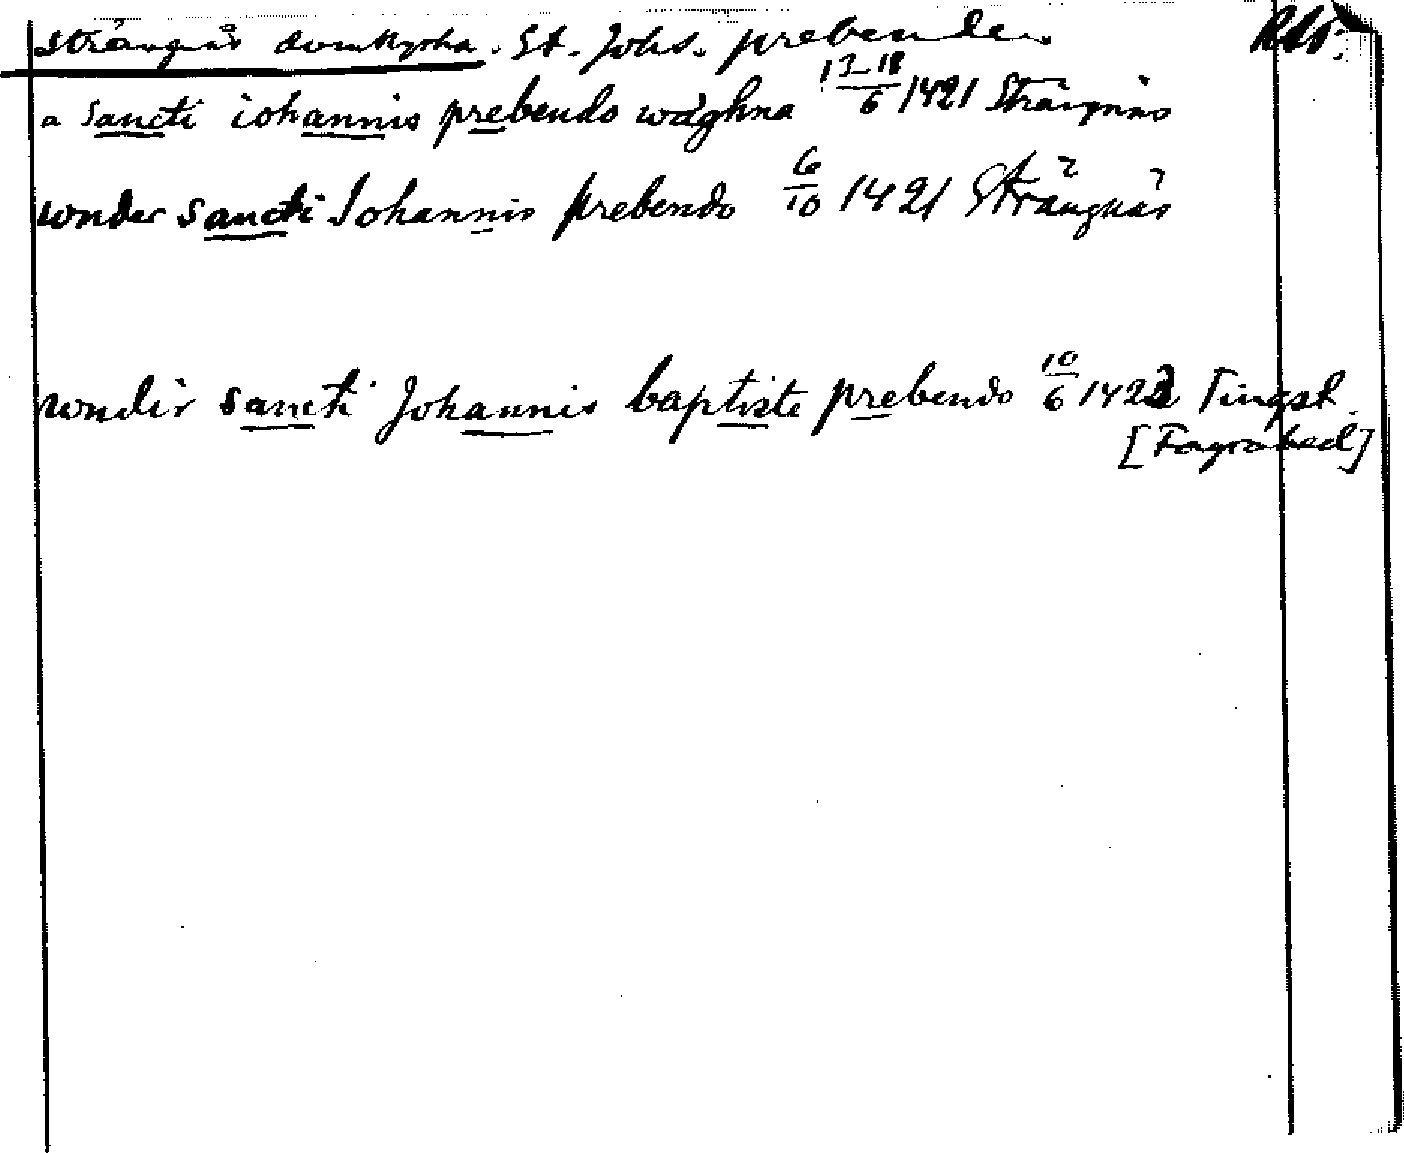 Strängnäs domkyrka. St. Johs. prebende.
a sancti iohannis prebendo wäghna 12–18/6 1421 Strängnäs
wnder sancti Johannis prebendo 6/10 1421 Strängnäs
wndir sancti Johannis baptiste prebendo 10/6 1422 Tingst
[Fogrobed]